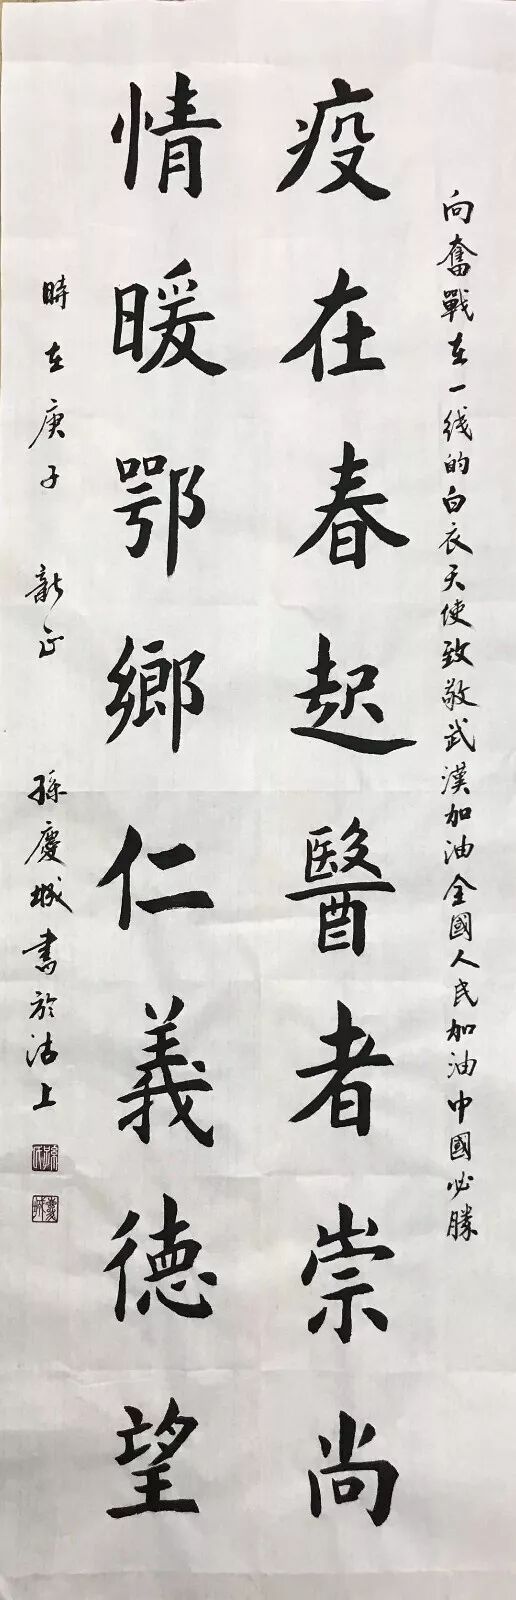 向奮戰在一线的白衣天使致敬武漢加油全國人民加油中國必勝
疫在春起醫者崇尚
情暖鄂鄉仁義德望
時在庚子 新正 孫慶城書於沽上